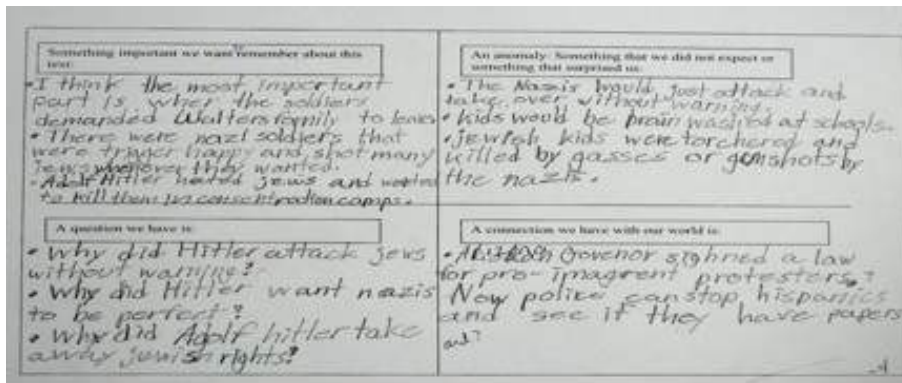 Something important we want remember about this
text:
• I think the most important
part is when the soldiers
demanded Walters family to leave
• There were nazi soldiers that
were triger happy and shot many
Jews whenever they wanted.
• Adolf Hitler hated jews and wanted
to kill them in consentration camps.
An anomaly: Something that we did not expect or
something that surprised us:
• The Nazis would just attack and
take over without warning.
• kids would be brain washed at schools.
• jewish kids were torchered and
killed by gasses or gunshots by
the nazis.
A question we have is:
• Why did Hitler attack jews
without warning?
• Why did Hitler want nazis
to be perfect?
• Why did Adolf hitler take
away jewish rights?
A connection we have with our world is:
• Governor sighned a law
for pro-imagrent protesters.?
Now police can stop hispanics
and see if they have papers